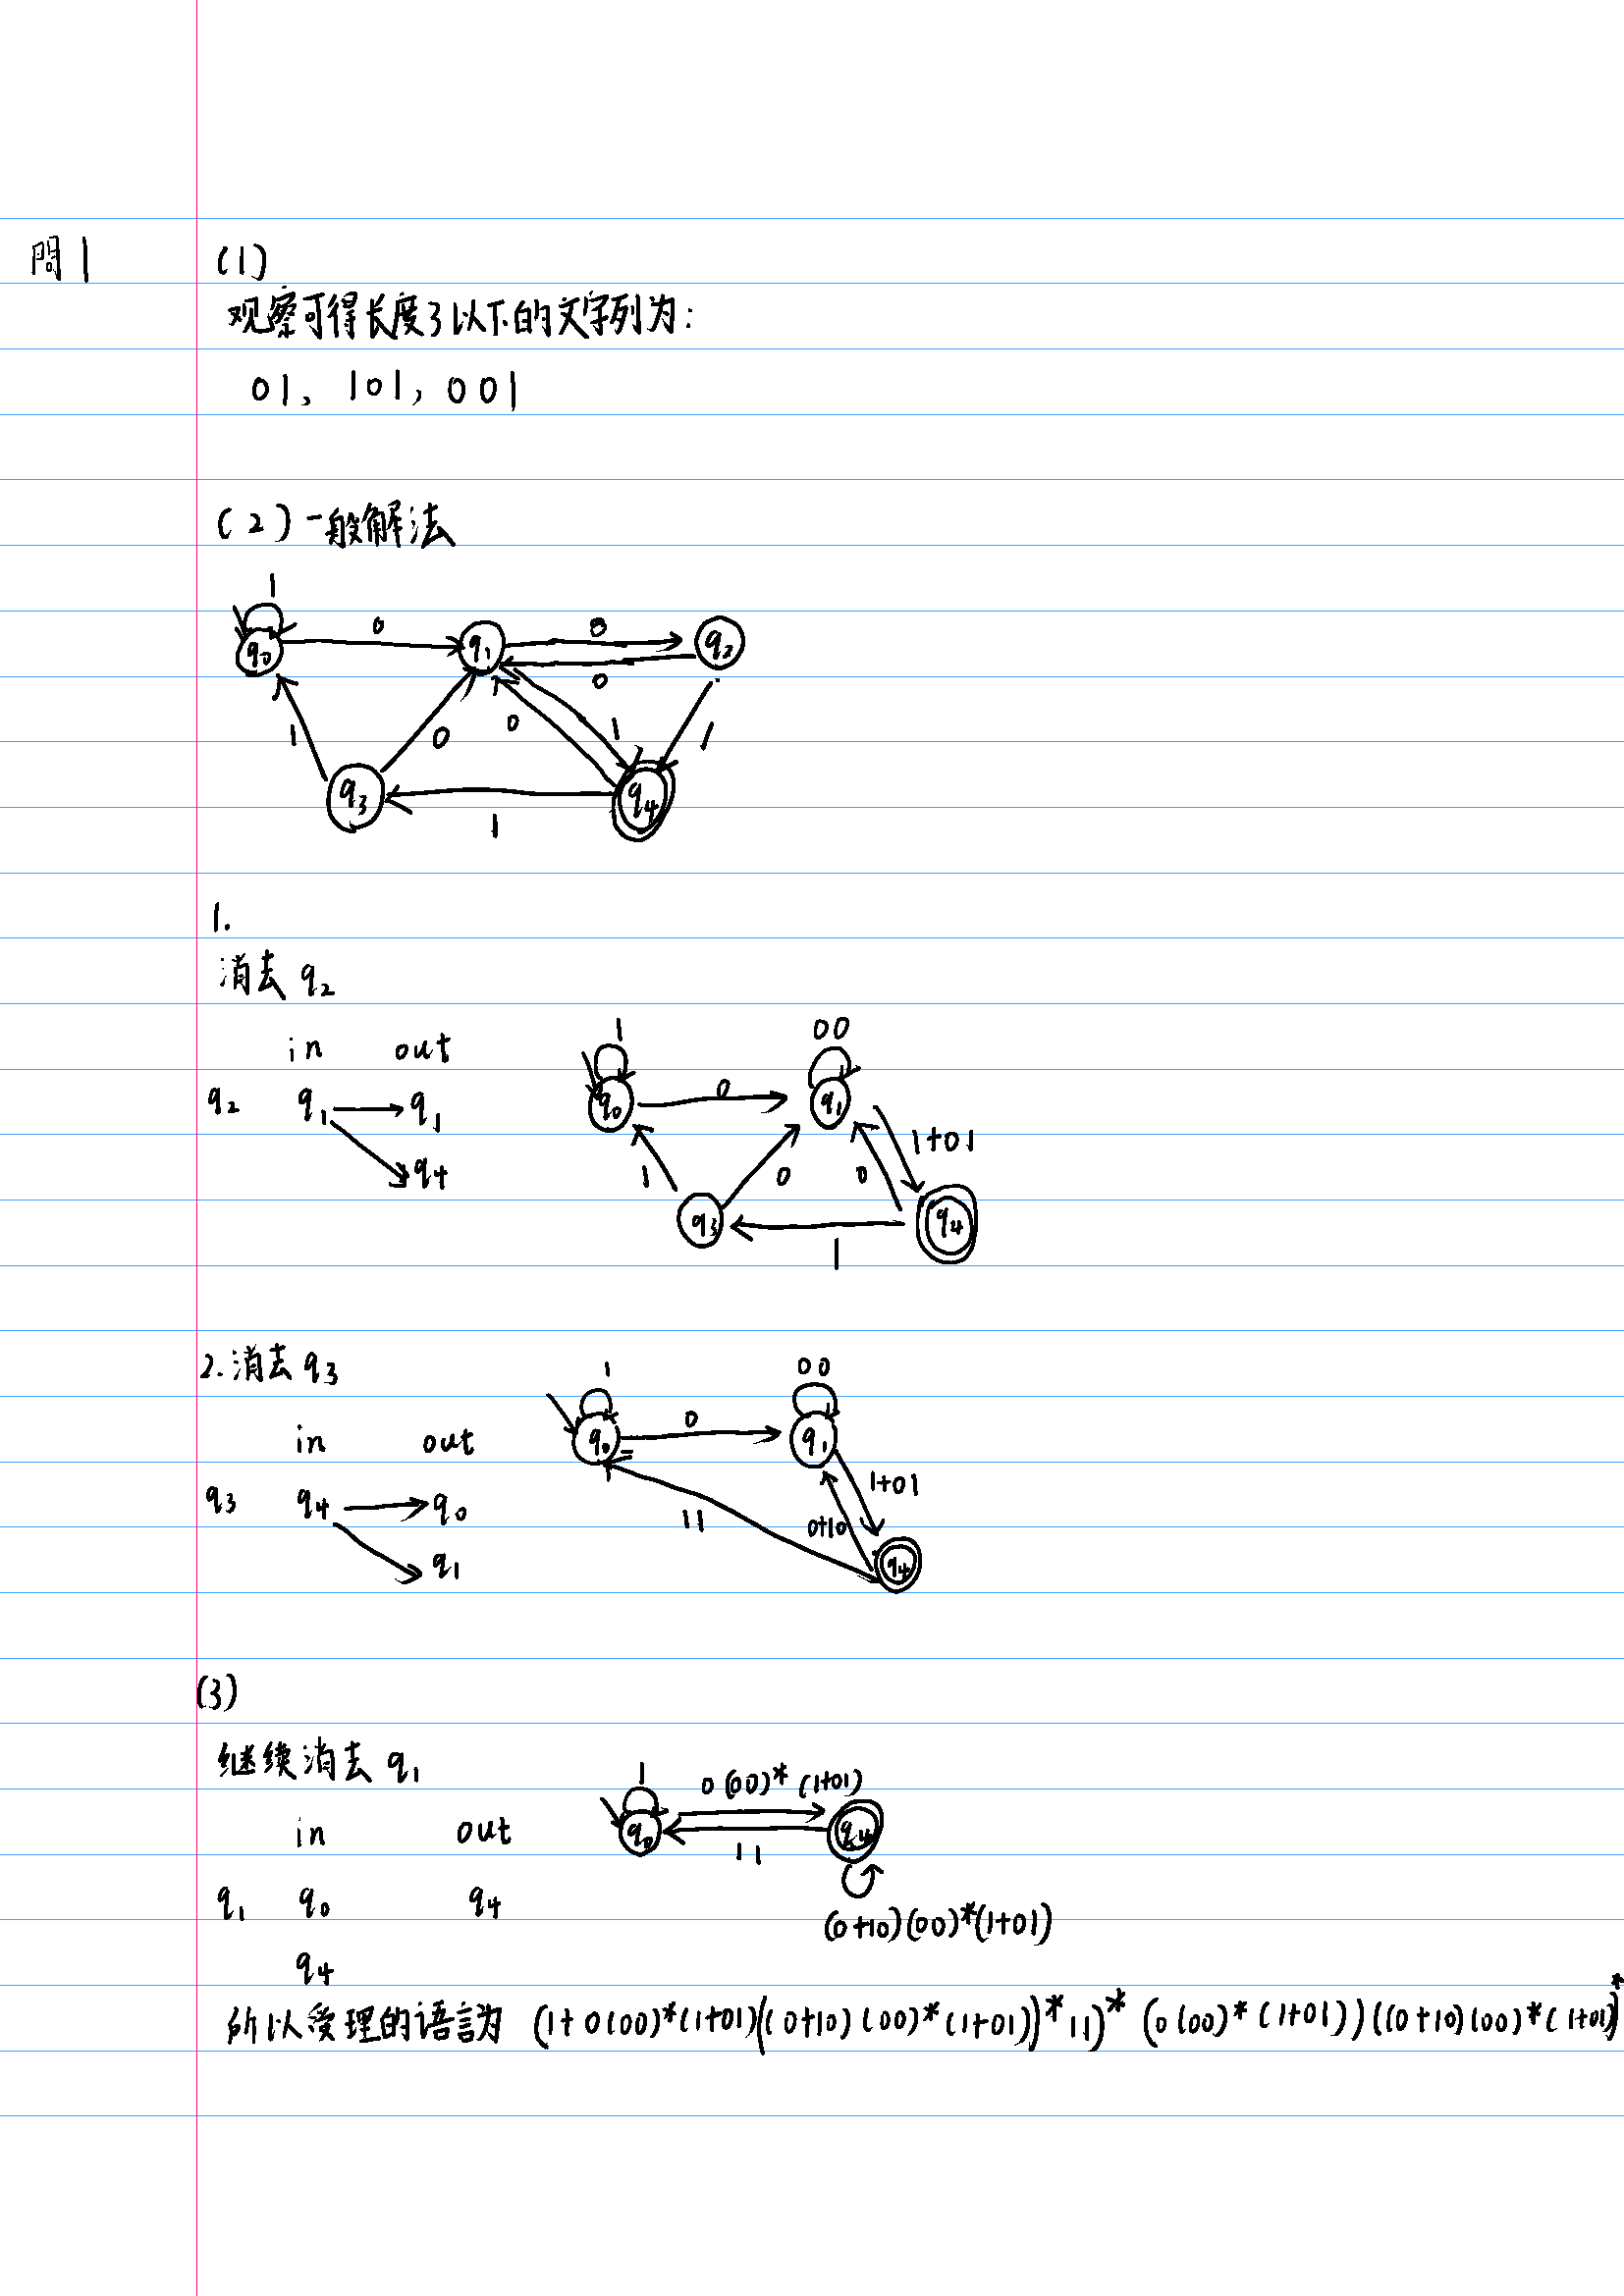 問1
(1)
观察可得长度3以下的文字列为:
01、101, 001
(2) 一般解法
1
0
0
q0
q1
q2
0
1
0
0
1
1
q3
q4
1
1.
消去 q2
in out
q2 q1 → q1
q4
1
00
q0
0
q1
1+01
1
0
0
q3
q4
1
2. 消去 q3
in out
q3 q4 → q0
q1
1
00
q0
0
q1
1+01
11
0+10
q4
(3)
继续消去 q1
in out
q1 q0 q4
q4
1
0(00)*(1+01)
q0
q4
11
(0+10)(00)*(1+01)
所以受理的语言为 (1+0(00)*(1+01)((0+10)(00)*(1+01))*11)* (0(00)*(1+01))((0+10)(00)*(1+01))*